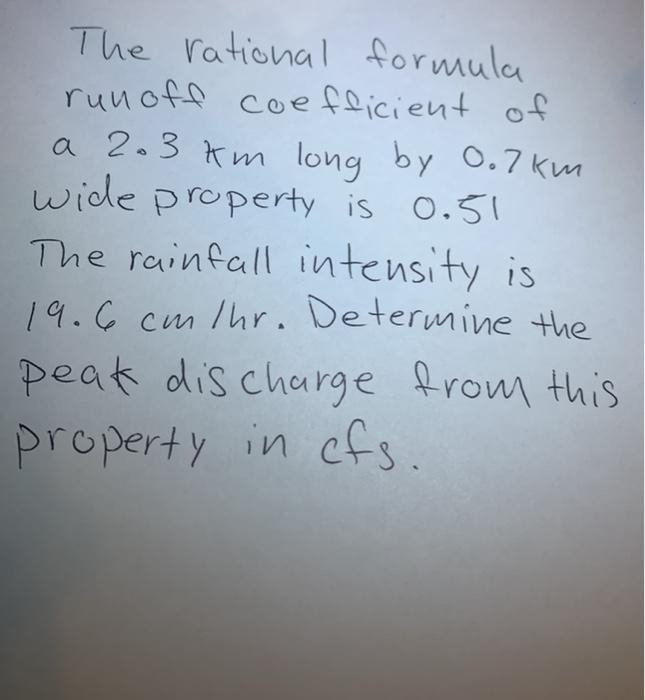 The rational formula
runoff coefficient of
a 2.3 km long by 0.7 km
wide property is 0.51
The rainfall intensity is
19.6 cm/hr. Determine the
peak discharge from this
property in cfs.